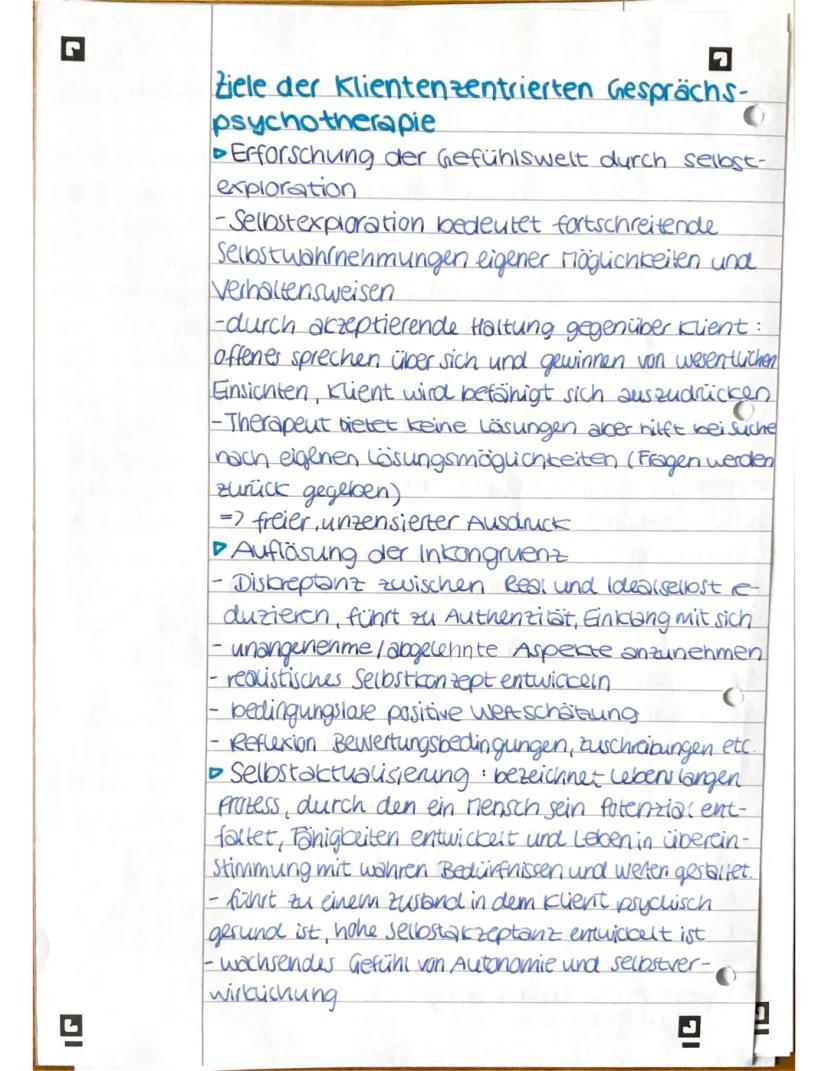 Ziele der Klientenzentrierten Gesprächs-
psychotherapie
▷ Erforschung der Gefühlswelt durch selbst-
exploration
- Selbstexploration bedeutet fortschreitende
Selbstwahrnehmungen eigener Möglichkeiten und
Verhaltensweisen
- durch akzeptierende Haltung gegenüber Klient :
offenes sprechen über sich und gewinnen von wesentlichen
Einsichten, Klient wird befähigt sich auszudrücken
- Therapeut bietet keine Lösungen aber hilft bei Suche
nach eigenen Lösungsmöglichkeiten (Fragen werden
zurück gegeben)
=> freier, unzensierter Ausdruck
▷ Auflösung der Inkongruenz
- Diskreptanz zwischen Real und Idealselbst re-
duzieren, führt zu Authenzität, Einklang mit sich
- unangenehme/abgelehnte Aspekte anzunehmen
- realistisches Selbstkonzept entwickeln
- bedingungslose positive Wertschätzung
- Reflexion Bewertungsbedingungen, Zuschreibungen etc.
▷ Selbstaktualisierung : bezeichnet Lebenslangen
Prozess, durch den ein Mensch sein Potenzial ent-
faltet, Fähigkeiten entwickelt und Leben in überein-
Stimmung mit wahren Bedürfnissen und Werten gestaltet.
- führt zu einem Zustand in dem Klient psychisch
gesund ist, hohe Selbstakzeptanz entwickelt ist
- wachsendes Gefühl von Autonomie und selbstver-
wirklichung